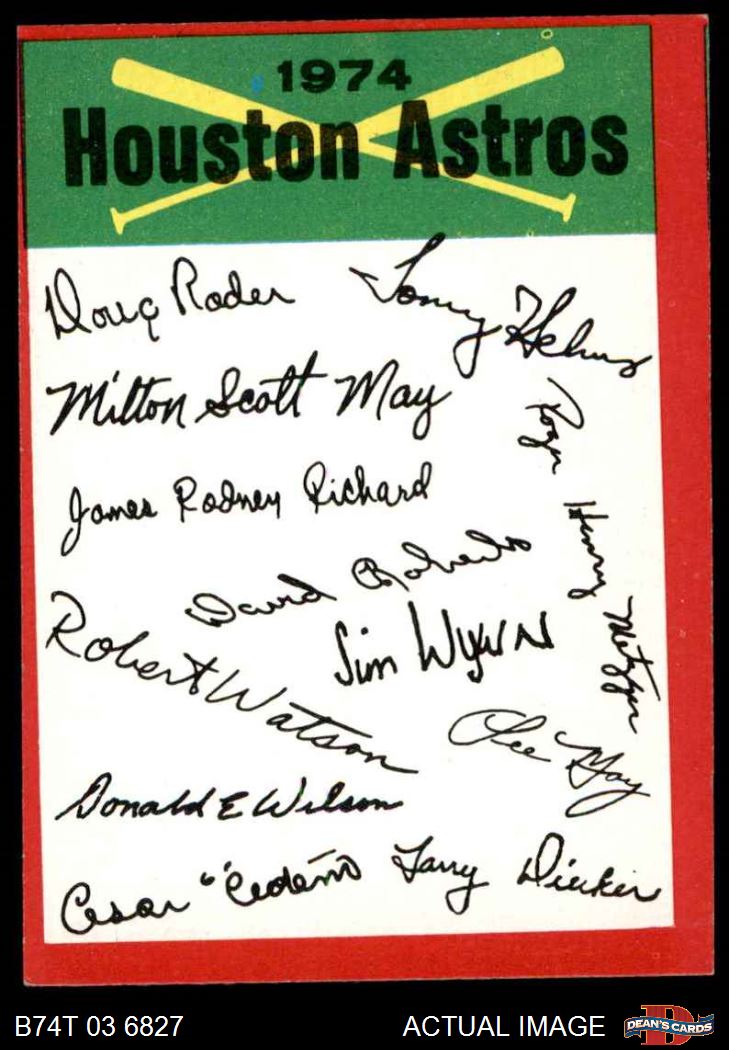 1974
Houston Astros
Doug Rader
Tommy Helms
Milton Scott May
Roger Henry Metzger
James Rodney Richard
David Roberts
Jim Wynn
Robert Watson
Lee May
Donald E Wilson
Cesar "Cedeño
Larry Dierker
B74T 03 6827
ACTUAL IMAGE
D
DEAN'S CARDS